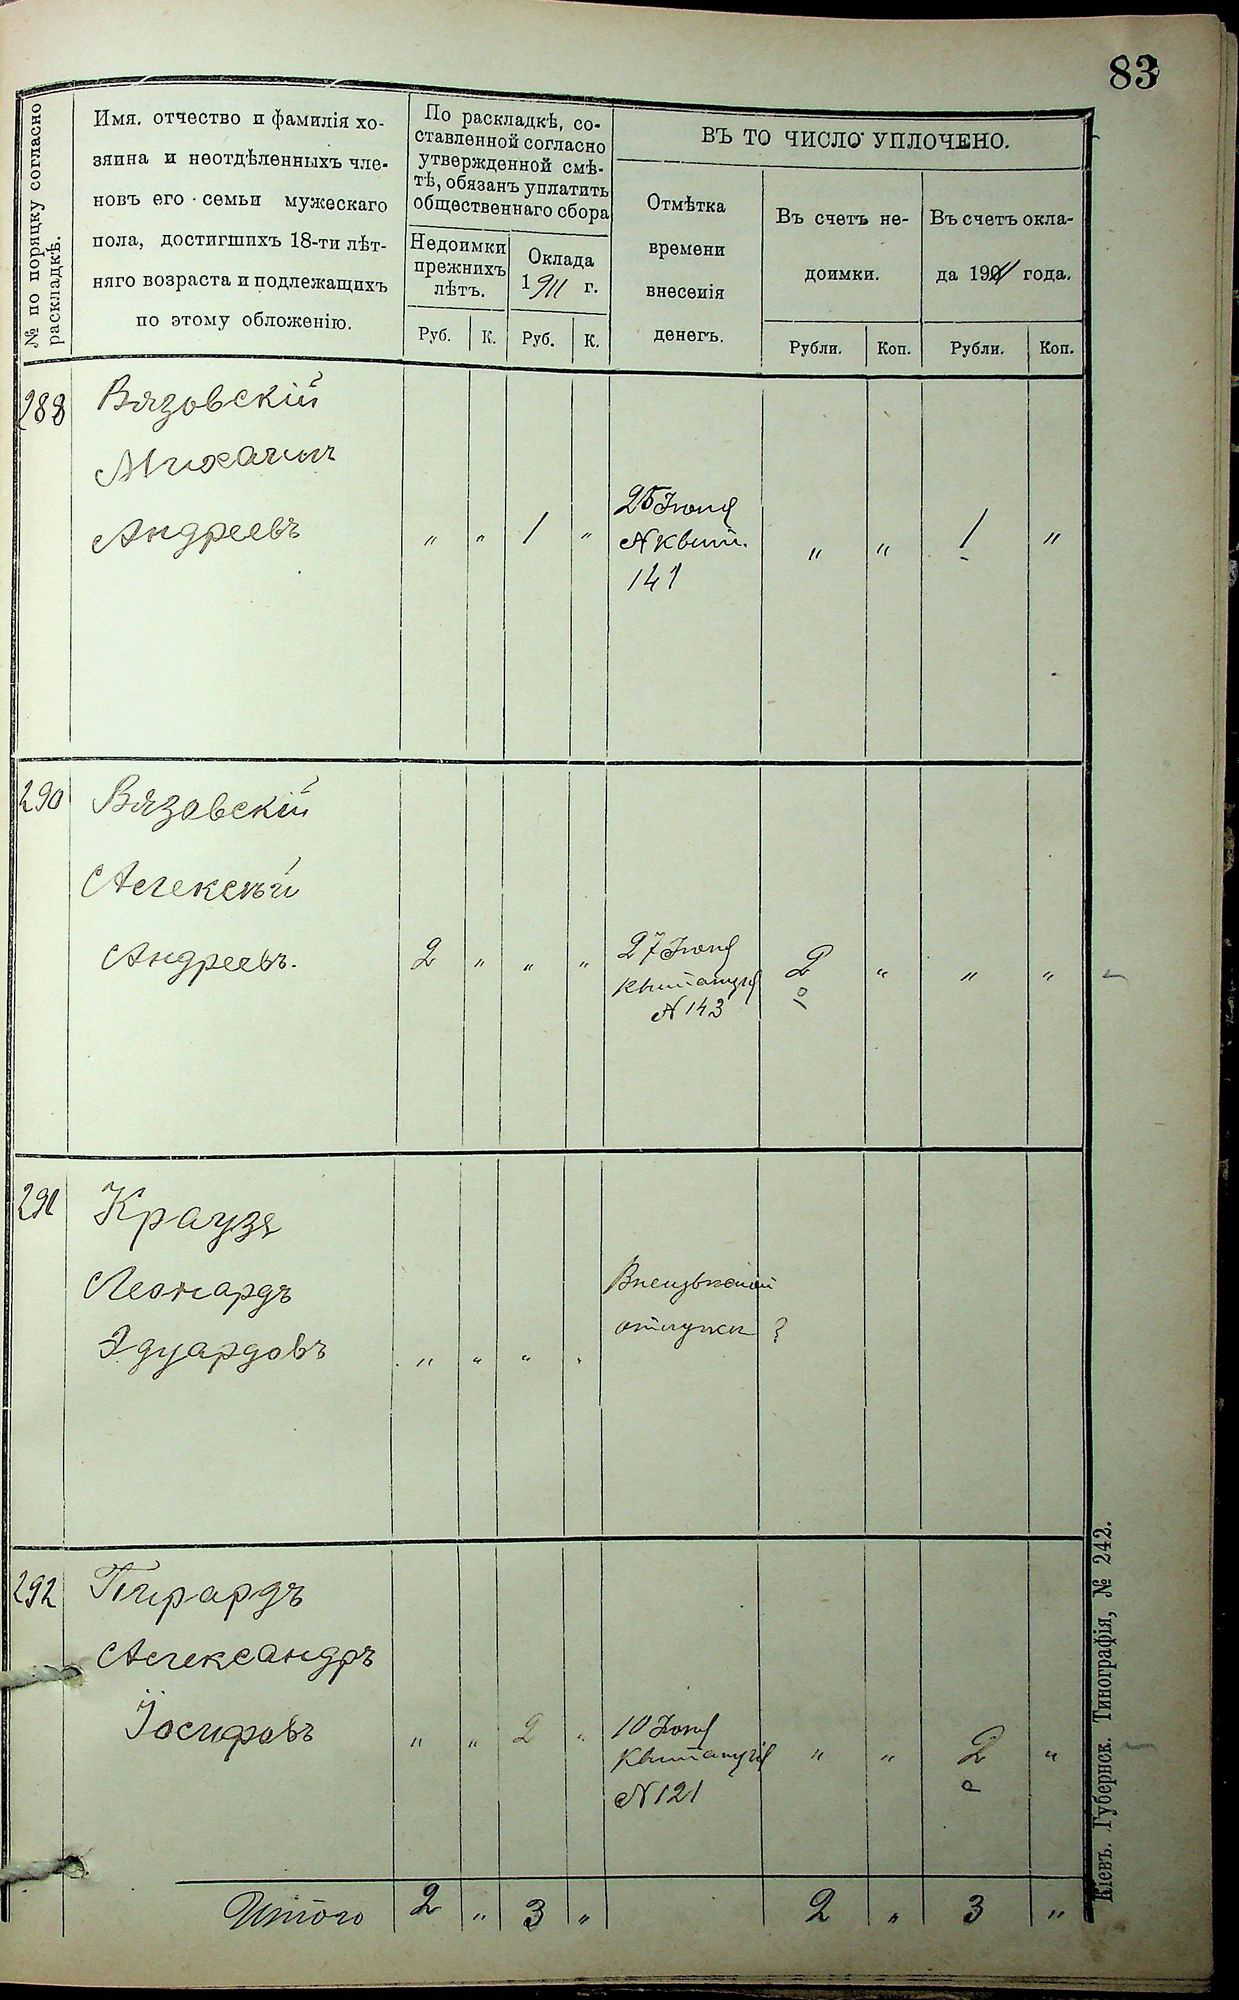 83
№ по порядку согласно
раскладкѣ.
Имя, отчество и фамилія хо-
зяина и неотдѣленныхъ чле-
новъ его семьи мужескаго
пола, достигшихъ 18-ти лѣт-
няго возраста и подлежащихъ
по этому обложенію.
По раскладкѣ, со-
ставленной согласно
утвержденной смѣ-
тѣ, обязанъ уплатить
общественнаго сбора
Недоимки
прежнихъ
лѣтъ.
Оклада
1911 г.
Руб. К. Руб. К.
ВЪ ТО ЧИСЛО УПЛОЧЕНО.
Отмѣтка
времени
внесенія
денегъ.
Въ счетъ не-
доимки.
Въ счетъ окла-
да 1911 года.
Рубли. Коп. Рубли. Коп.
288 Вязовскій
Михаилъ
Андреевъ " " 1 "
25 Іюня
№ квит.
141
" " 1 "
290 Вязовскій
Алексѣй
Андреевъ. 2 " " "
27 Іюня
квитанція
№ 143
2 " " "
291 Краузе
Леонардъ
Эдуардовъ " " "
отлучки ?
292 Пирардъ
Александръ
Іосифовъ " " 2 "
10 Іюня
Квитанція
№ 121
" " 2 "
Итого 2 " 3 " 2 " 3 "
Кіевъ. Губернск. Типографія, № 242.